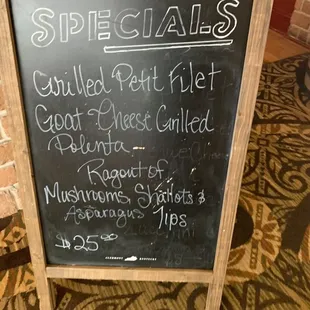 SPECIALS
Grilled Petit Filet
Goat Cheese Grilled
Polenta
Ragout of
Mushrooms, Shallots &
Asparagus Tips
$25.00